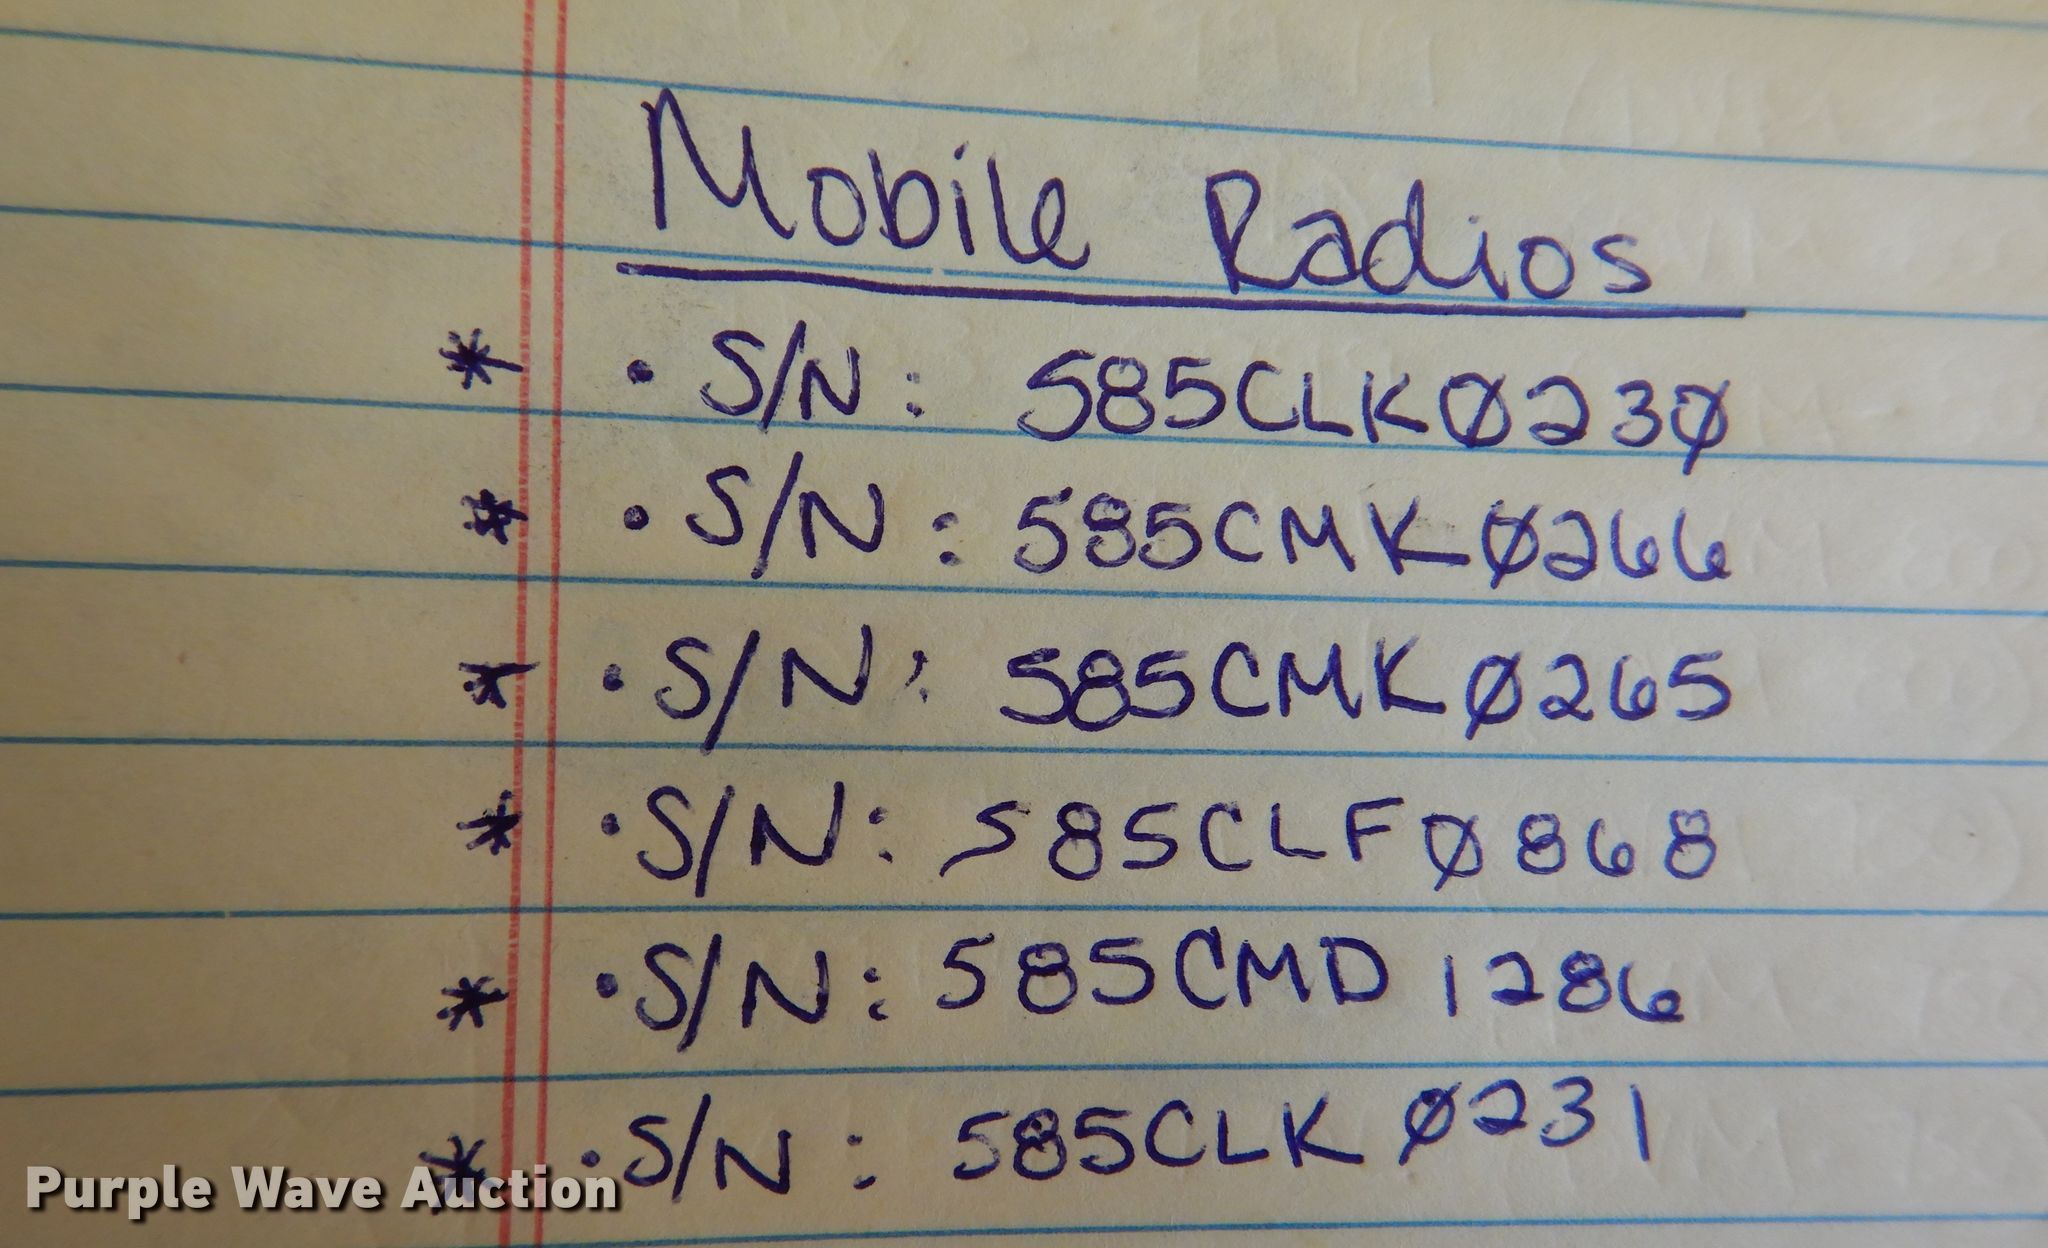 Mobile Radios
* • S/N: 585CLKØ23Ø
* • S/N: 585CMKØ266
* • S/N: 585CMKØ265
* • S/N: 585CLFØ868
* • S/N: 585CMD1286
* • S/N: 585CLKØ231
Purple Wave Auction